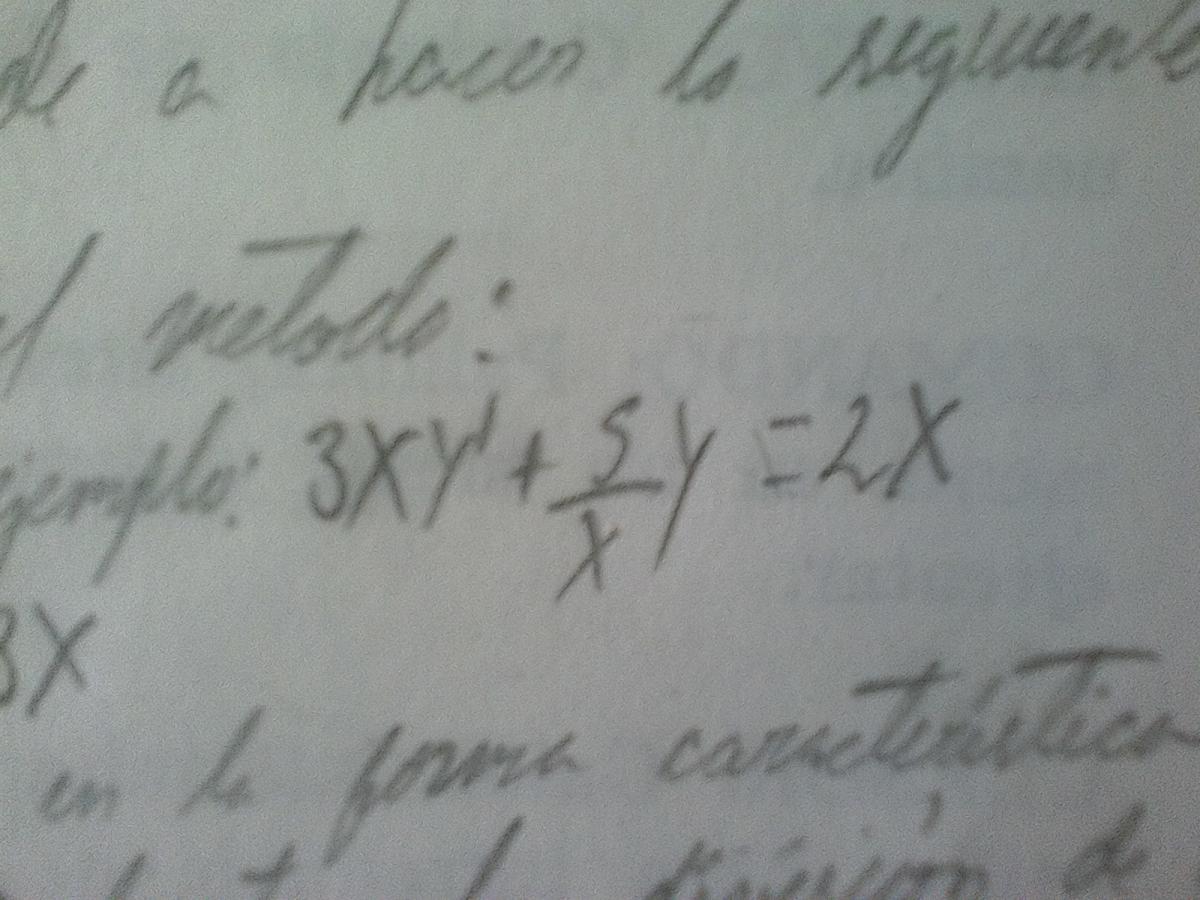 de a hacer lo siguiente
el metodo:
ejemplo: 3xy' + 5/x y = 2x
3x
en la forma característica
división d